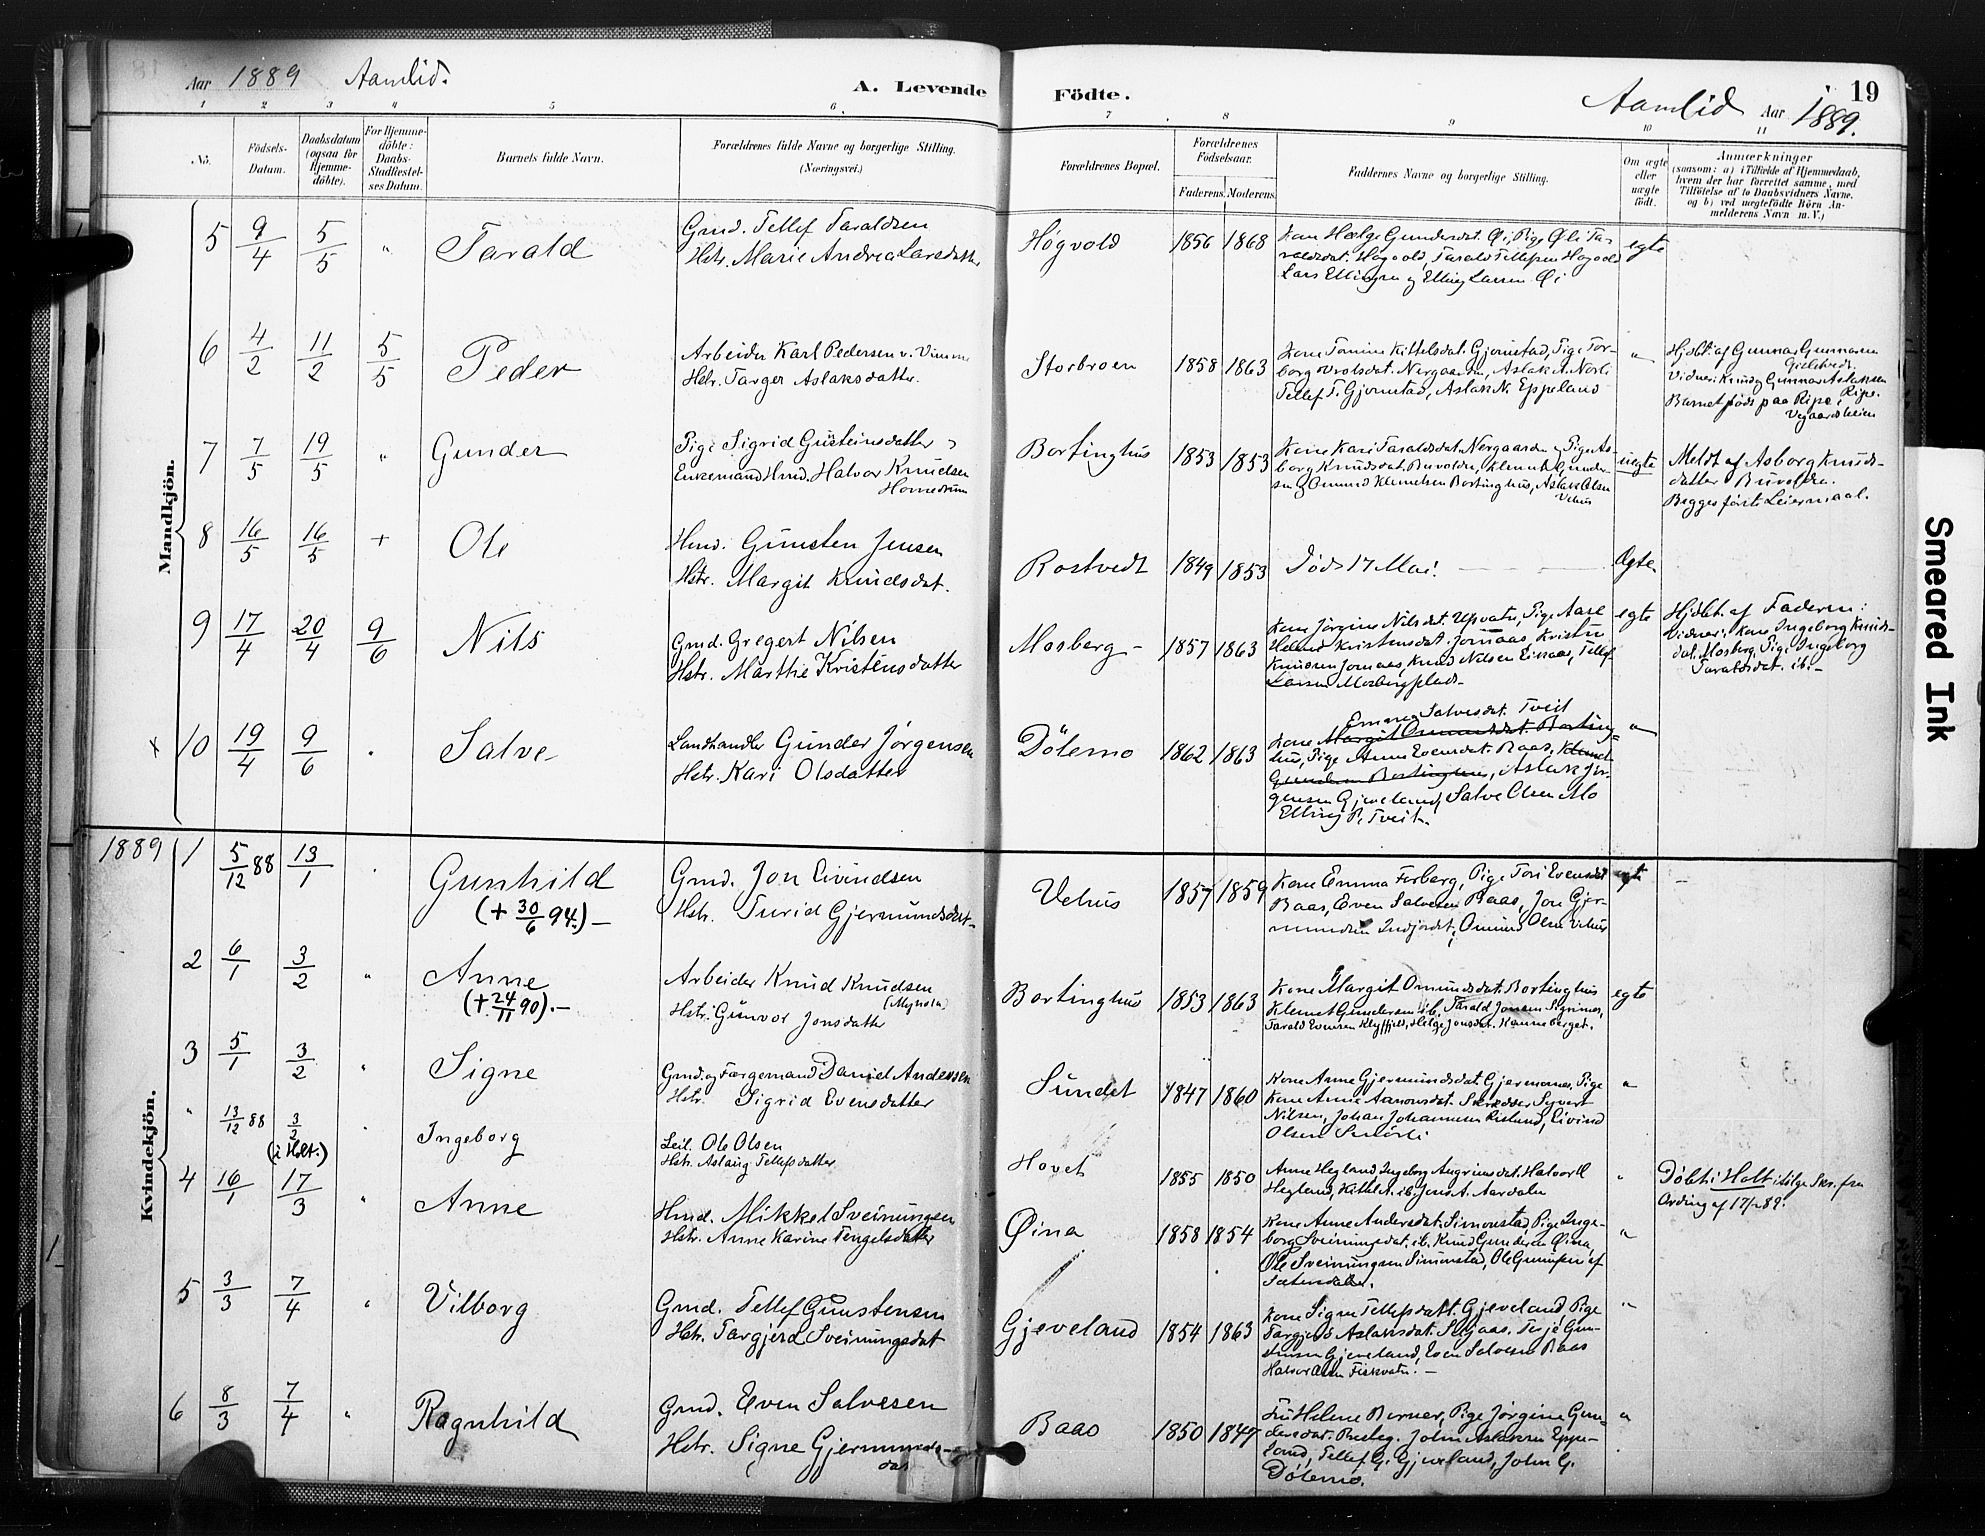 Aar 1889 Aamlid.
A. Levende Födte.
Aamlid Aar 1889.
19
1 2 3 4 5 6 7 8 9 10 11
No.
Födsels-Datum.
Daabsdatum (ogsaa for Hjemme-döbte).
For Hjemme-döbte: Daabs-Stadfæstel-ses Datum.
Barnets fulde Navn.
Forældrenes fulde Navne og borgerlige Stilling. (Næringsvei.)
Forældrenes Bopæl.
Forældrenes Födselsaar.
Faderens. Moderens.
Faddernes Navne og borgerlige Stilling.
Om ægte eller uægte födt.
Anmærkninger
(saasom: a) i Tilfælde af Hjemmedaab, hvem der har forrettet samme, med Tilföielse af to Daabsvidners Navne, og b) ved uægtefödte Börn An-melderens Navn m. V.)
Mandkjön.
5 9/4 5/5 " Tarald
Gmd. Tellef Taraldsen
Hstr. Marie Andrea Larsdatter
Høgvold 1856 1868
Kone Hælge Gundersdat. Øi, Pige Øli Ta-
raldsdat. Høgvold, Tarald Tellefsen Høgvold
Lars Ellingsen og Elling Larsen Øi
egte
6 4/2 11/2 5/5 Peder
Arbeider Karl Pedersen v.
Hstr. Targer Aslaksdatter.
Storbroen 1858 1863
Kone Tomine Kittelsdat. Gjernstad, Pige Tor-
borg Nergaarden, Aslak
Tellef T. Gjernstad, Aslak N. Eppeland
"
Hjdbt. af Gunnar Gunnarsen
Vidner: Knud og Gunnar Aslaksen Ripe.
Barnet føds paa Ripe,
Vegaardsheien
7 7/5 19/5 " Gunder
Pige Sigrid Gusteinsdatter
Enkemand Hmd. Halvor Knudsen
Homdrum
Bortinghus 1853 1853
Kone Kari Taraldsdat. Nergaarden, Pige As-
borg Knudsdat. Buvolden, Klemet Gunder-
sen og Omund Klemetsen Bortinghus, Aslak Olsen
Vehus
uegte
Meldt af Asborg Knuds-
datter Buvolden.
Begges første Leiermaal.
8 16/5 16/5 + Ole
Hmd. Gunsten Jensen
Hstr. Margit Knudsdat.
Rostvedt 1849 1853 Døds 17 Mai.
Ægte
9 17/4 20/4 9/6 Nils
Gmd. Gregert Nilsen
Hstr. Marthe Kristensdatter
Mosberg - 1857 1863
Kone Jørgine Nilsdat. Upvatn, Pige Aase
Helene Kristensdat. Jomaas, Kristen
Knudsen Jomaas, Knud Nilsen Eikaas, Tellef
Larsen Mosbergplads -
egte
Hjdbt. af Faderen:
Vidner: Kone Ingeborg Knuds-
dat. Mosberg, Pige Ingeborg
Taraldsdat. ib. -
x 10 19/4 9/6 " Salve
Landhandler Gunder Jørgensen
Hstr. Kari Olsdatter
Dølemo 1862 1863
Emma Salvesdat. Tveit
Kone Margit Omundsdat. Borting-
hus, Pige Anne Evensdat. Baas, Klemet
Gundersen Bortinghus, Aslak Jør-
gensen Gjeveland, Salve Olsen Mo
Elling P. Tveit.
"
Kvindekjön.
1889 1 5/12 88 13/1 " Gunhild
(+ 30/6 94.) -
Gmd. Jon Eivindsen
Hstr. Turid Gjermundsdat -
Vehus 1857 1859
Kone Emma Ferberg, Pige Tori Evensdat
Baas, Even Salvesen Baas, Jon Gjer-
mundsen Indjordet, Omund Olsen Vehus
egte -
2 6/1 3/2 " Anne
(+ 24/11 90). -
Arbeider Knud Knudsen
Hstr. Gunvor Jonsdatter
Bortinghus 1853 1863
Kone Margit Omundsdat. Bortinghus
Klemet Gundersen ib., Tarald Jonsen Sigrinæs,
Tarald Evensen Kleffjeld, Helge Jonsdat. Kanneberget.
egte
3 5/1 3/2 " Signe
Gmd. og Færgemand Daniel Andersen
Hstr. Sigrid Evensdatter
Sundet 1847 1860
Kone Anne Gjermundsdat. Gjermones, Pige
Kone Anne Aanonsdat. Skrædder Syvert
Nilsen, Johan Johannesen Risland, Eivind
Olsen
"
" 13/12 88 3/2 (i Holt.) " Ingeborg
Leil. Ole Olsen
Hstr. Aslaug Tellefsdatter
Hovet 1855 1850
Anne Hegland, Ingeborg Angrimsdat. Halvor
Hegland, Kittel A. ib., Jens A. Aardalen
"
Døbt i Holt ifølge Skr. fra
4 16/1 17/3 " Anne
Hmd. Mikkel Sveinungsen
Hstr. Anne Karine Tengelsdatter
Øina 1858 1854
Kone Anne Andersdat. Simonstad, Pige Inge-
borg Sveinungsdat. ib. Knud Gundersen Øina,
Ole Sveinungsen Simonstad, Ole Gunufsen af
Sætersdalen.
"
5 3/3 7/4 " Vilborg
Gmd. Tellef Gunstensen
Hstr. Targjerd Sveinungsdat
Gjeveland 1854 1863
Kone Signe Tellefsdatt. Gjeveland, Pige
Targjerd Aslaksdat. Seljaas. Terje Gun-
stensen Gjeveland, Even Salvesen Baas
Halvor Olsen Fiskvatn. -
"
6 8/3 7/4 " Ragnhild
Gmd. Even Salvesen
Hstr. Signe Gjermunds-
dat
Baas 1850 1847
Fru Helene Berner, Pige Jørgine Gun-
dersdat. Præsteg. John Aslaksen Eppe-
land, Tellef G. Gjeveland, John G.
Dølemo.
"
Smeared Ink